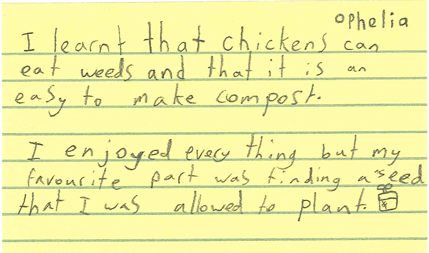 Ophelia
I learnt that chickens can
eat weeds and that it is an
easy to make compost.
I enjoyed every thing but my
favourite part was finding a seed
that I was allowed to plant.